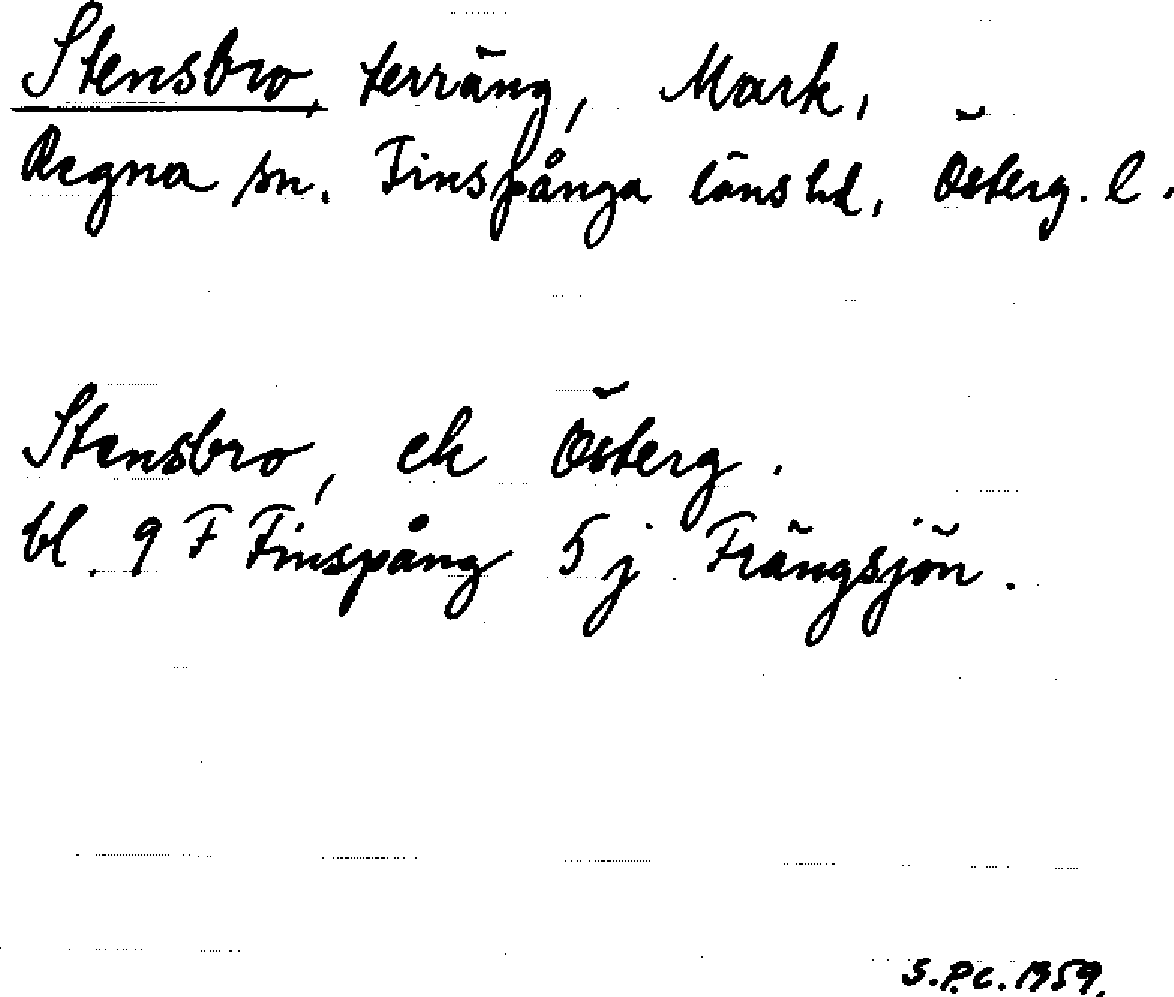 Stensbro, terräng, Mark,
Regna sn. Finspånga länshd, Österg. l.
Stensbro, ek Österg.
bl. 9 F Finspång 5 j Frängsjön.
S.P.C. 1959.